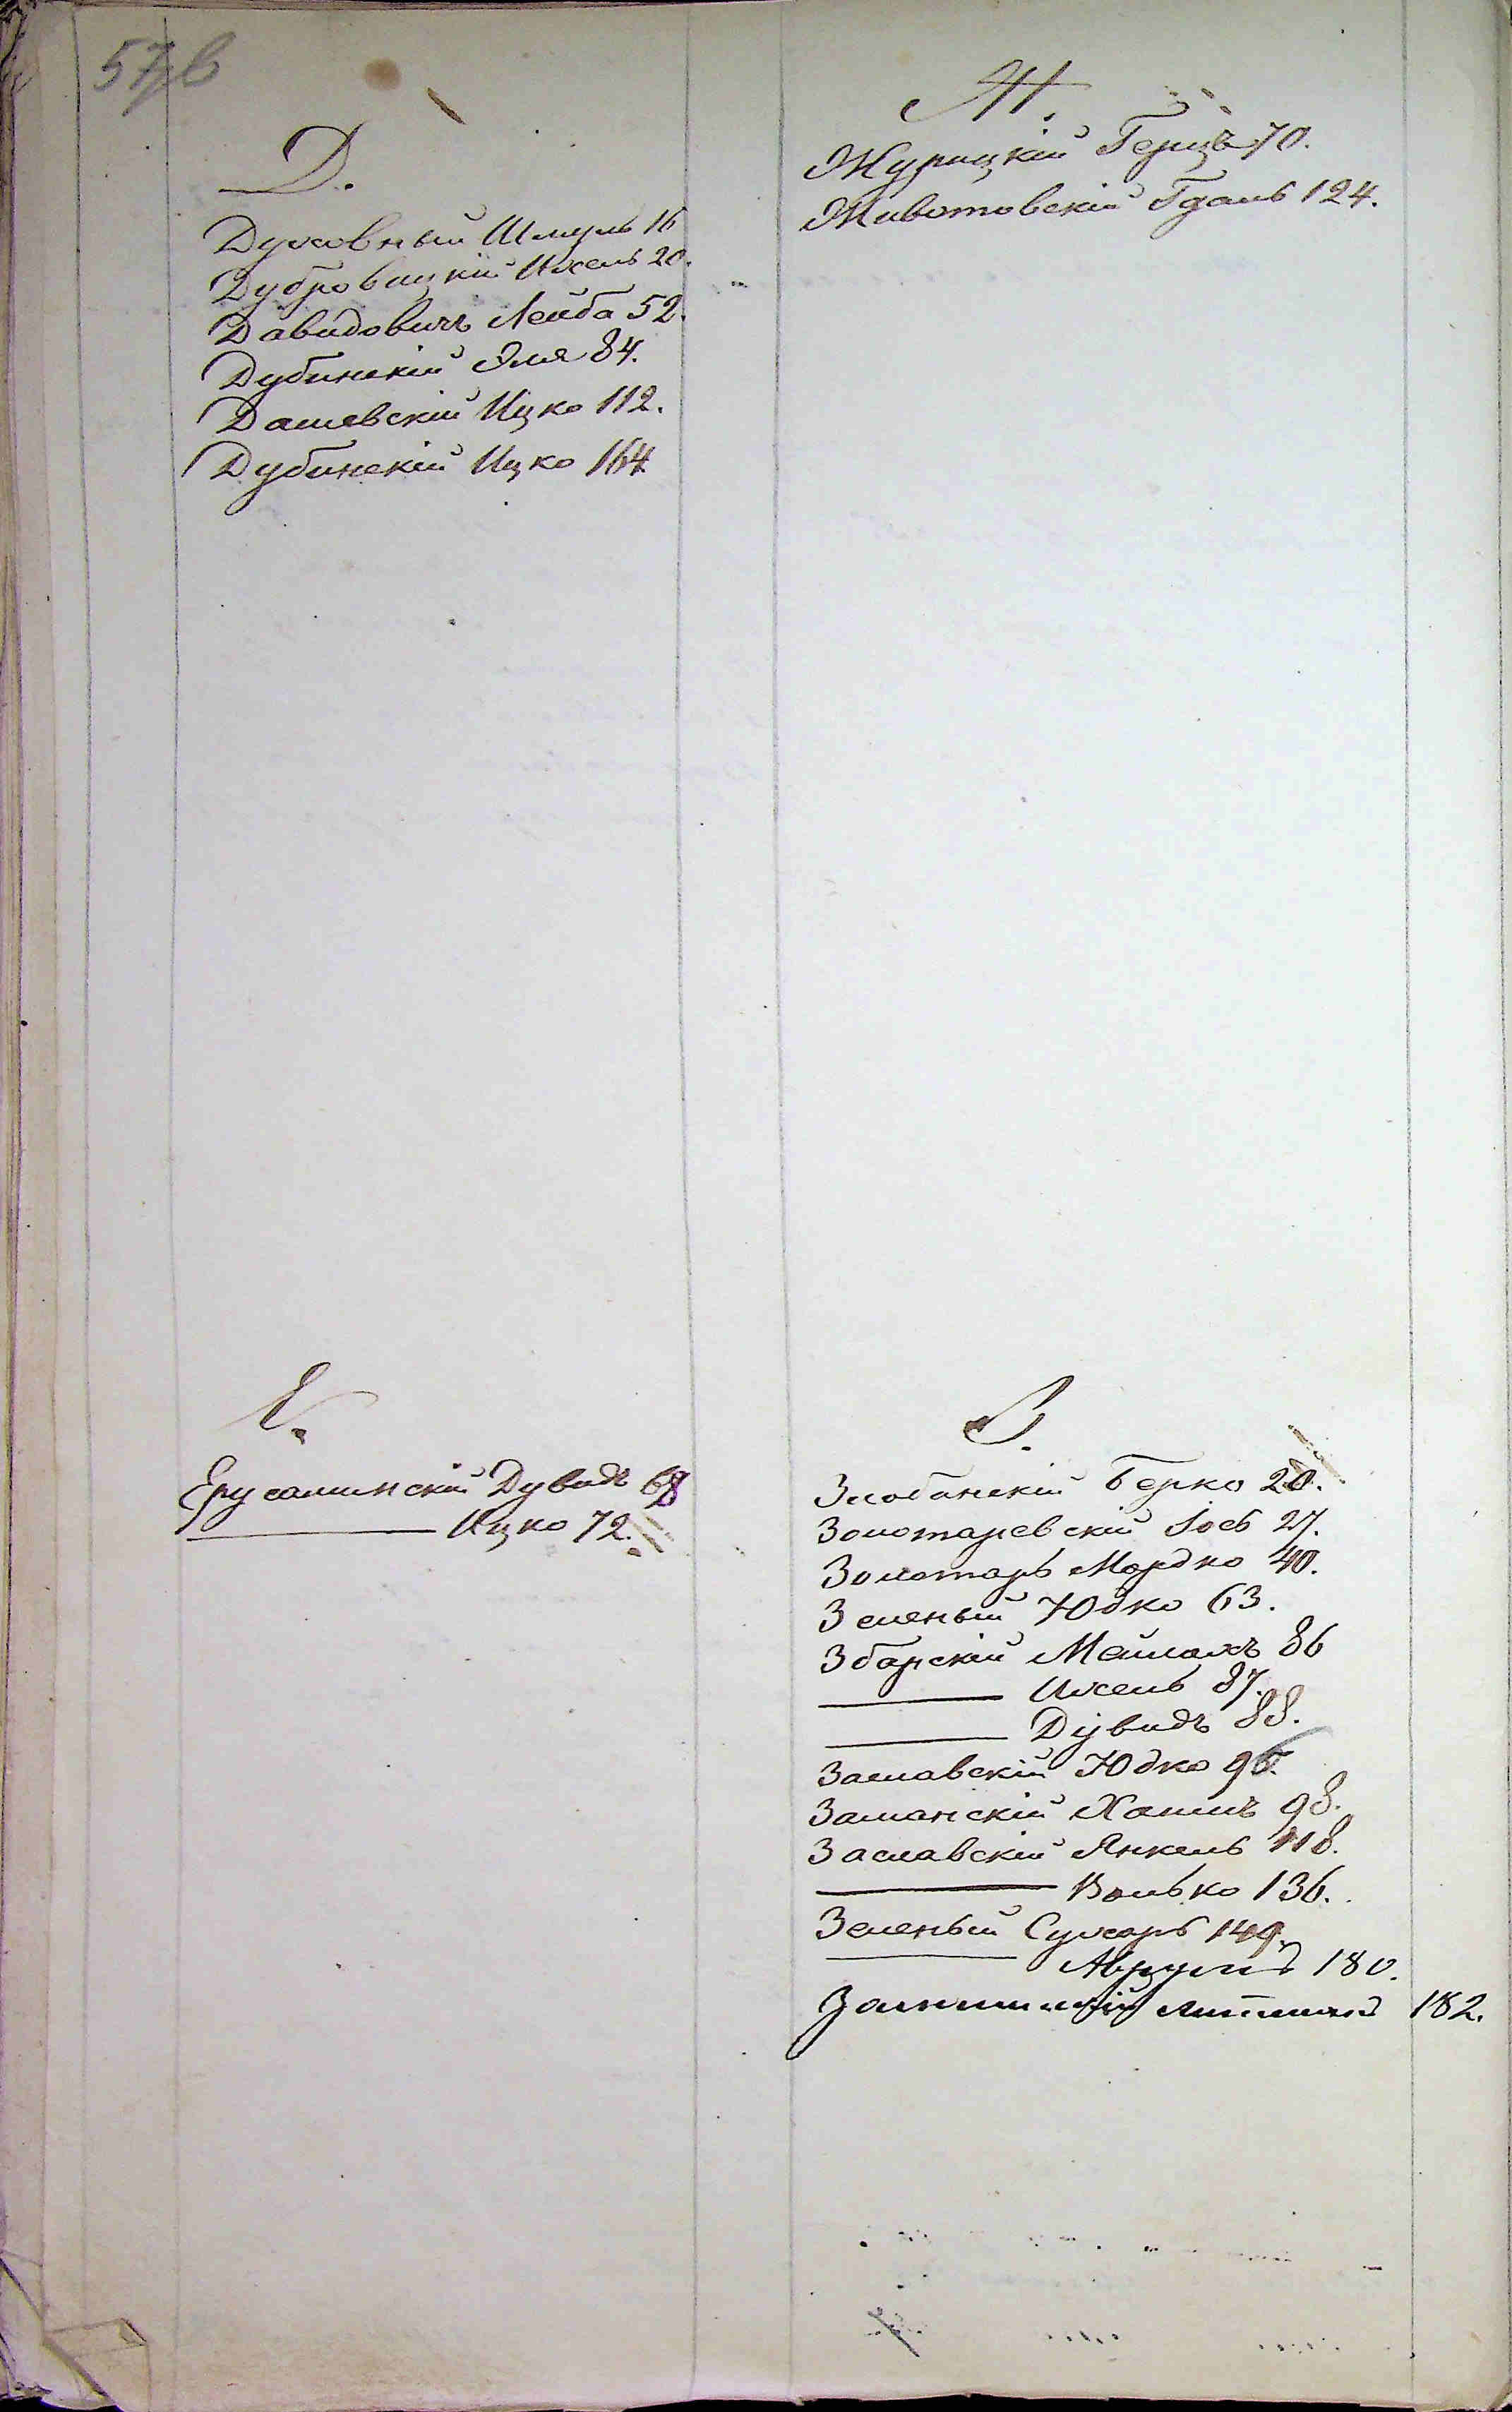 57б
Д.
Духовный Шмуль 16
Дубровицкій Ихель 20.
Давидовичъ Лейба 52.
Дубинскій Эля 84.
Дашевскій Ицко 112.
Дубинскій Ицко 164
Е.
Ерусалимскій Дувидъ 68
——— Ицко 72.
Ж.
Журицкій Герцъ 70.
Животовскій Гдаль 124.
З.
Злобинскій Берко 20.
Золотаревскій Іось 27.
Золотарь Мордко 40.
Зеленый Юдко 63.
Збарскій Майлахъ 86
——— Ихель 87.
——— Дувидъ 88.
Заславскій Юдко 96.
Заманскій Хаимъ 98.
Заславскій Янкель 118.
——— Волько 136.
Зеленый Сухаръ 149.
——— Аврумъ 180.
182.